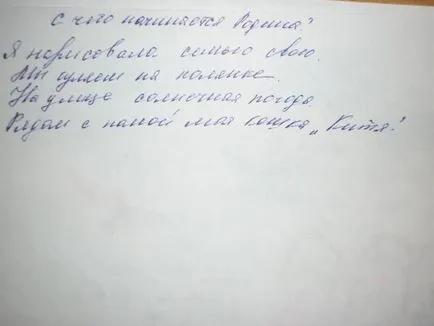 С чего начинается Родина?
Я нарисовала семью свою.
Мы гуляем на полянке.
На улице солнечная погода.
Рядом с папой моя кошка „Китя".